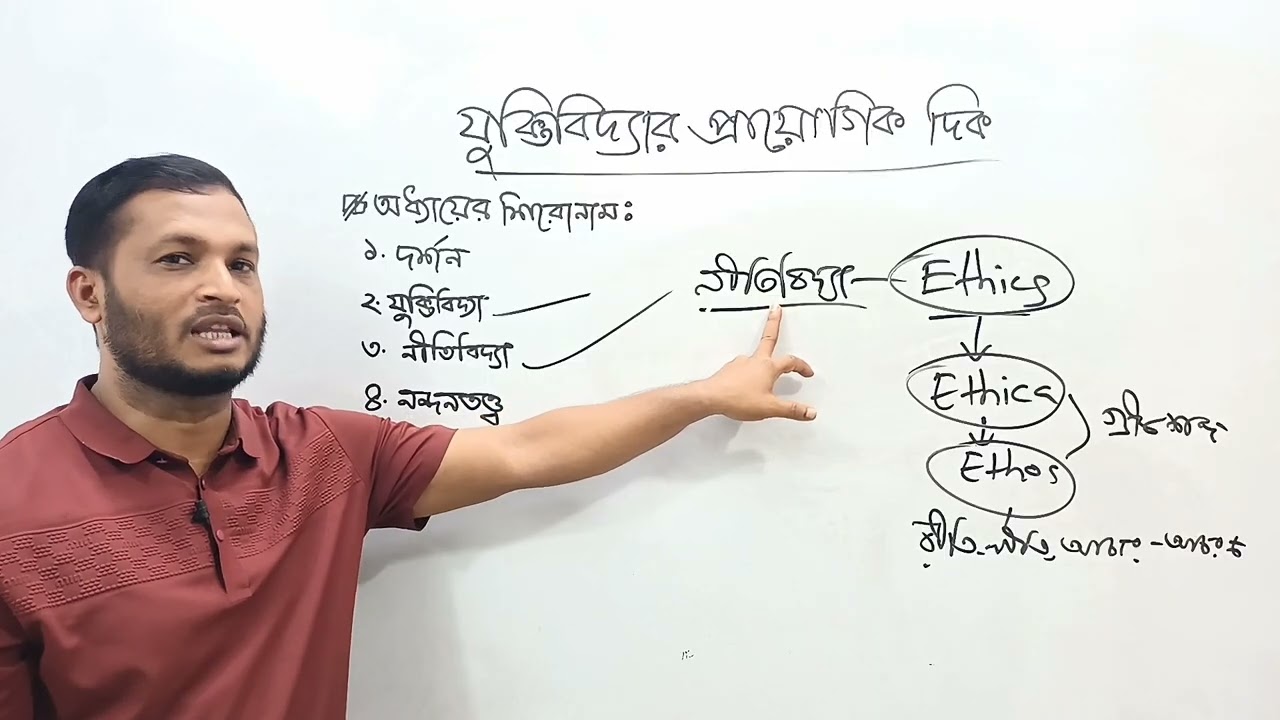 যুক্তিবিদ্যার প্রায়োগিক দিক
অধ্যায়ের শিরোনাম:
১. দর্শন
২. যুক্তিবিদ্যা
৩. নীতিবিদ্যা
৪. নন্দনতত্ত্ব
নীতিবিদ্যা — Ethics
Ethica
Ethos
গ্রীক শব্দ
রীতি-নীতি, আচার-আচরণ